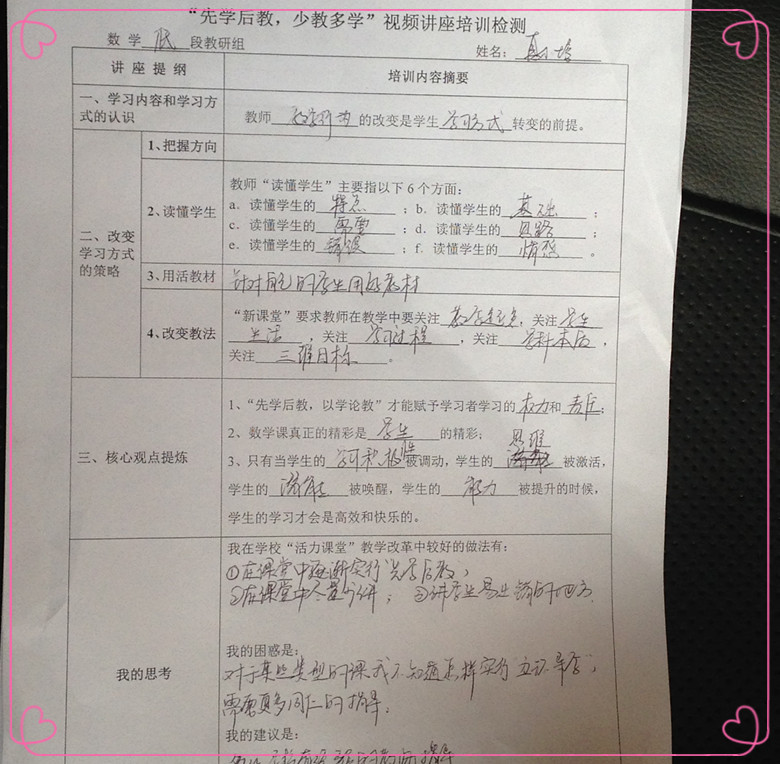 “先学后教，少教多学”视频讲座培训检测
数 学 低 段教研组 姓名：
讲 座 提 纲 培训内容摘要
一、学习内容和学习方式的认识 教师 教学行为 的改变是学生 学习方式 转变的前提。
二、改变学习方式的策略
1、把握方向
2、读懂学生
教师“读懂学生”主要指以下 6 个方面：
a．读懂学生的 特点 ；b．读懂学生的 基础 ；
c．读懂学生的 需要 ；d．读懂学生的 思路 ；
e．读懂学生的 错误 ；f．读懂学生的 情感 。
3、用活教材 针对自己的学生用好教材
4、改变教法
“新课堂”要求教师在教学中要关注 ，关注 学生
生活 ，关注 学习过程 ，关注 学科本质 ，
关注 三维目标 。
三、核心观点提炼
1、“先学后教，以学论教”才能赋予学习者学习的 权力 和 责任；
2、数学课真正的精彩是 学生 的精彩；
3、只有当学生的 学习积极性 被调动，学生的 思维 被激活，
学生的 潜能 被唤醒，学生的 能力 被提升的时候，
学生的学习才会是高效和快乐的。
我的思考
我在学校“活力课堂”教学改革中较好的做法有：
①在课堂中逐渐实行“先学后教”；
②在课堂中尽量少讲； ③讲学生易出错的地方.
我的困惑是：
对于某些类型的课我不知道怎样实行
需要更多同仁的指导。
我的建议是：